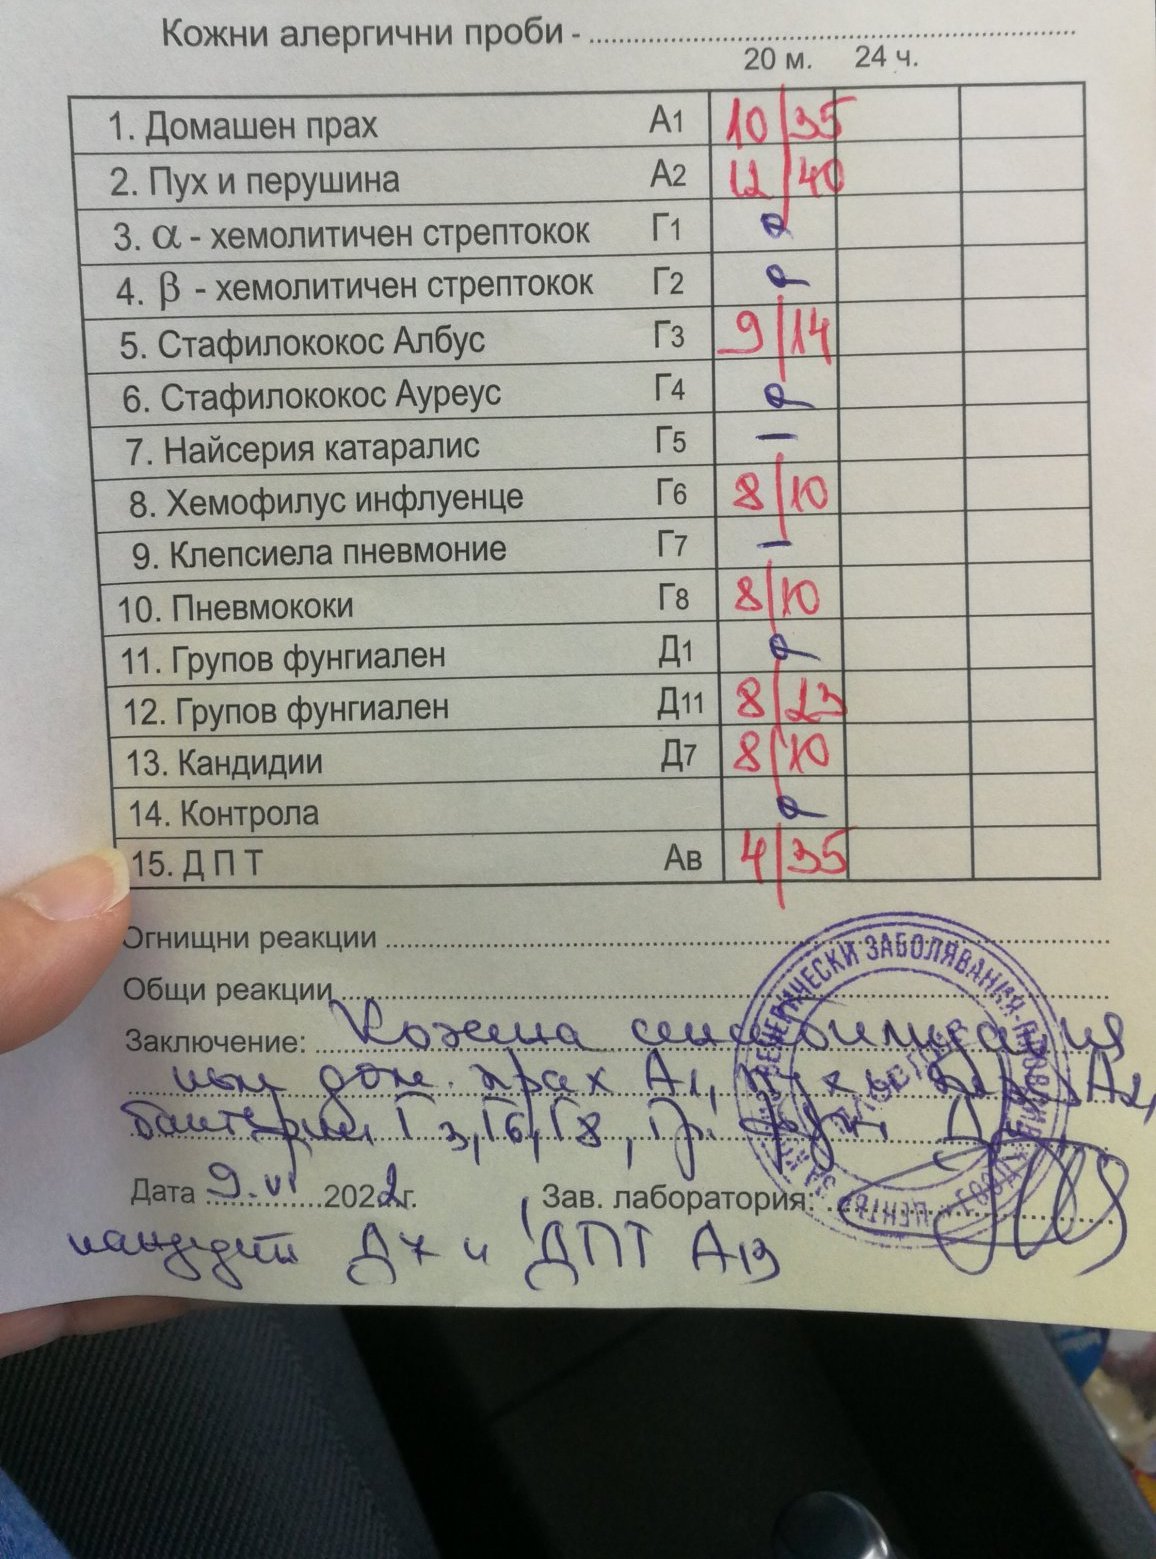 Кожни алергични проби - 
20 м. 24 ч.
1. Домашен прах А1 10/35
2. Пух и перушина А2 12/40
3. α - хемолитичен стрептокок Г1
4. β - хемолитичен стрептокок Г2
5. Стафилококос Албус Г3 9/14
6. Стафилококос Ауреус Г4
7. Найсерия катаралис Г5 –
8. Хемофилус инфлуенце Г6 8/10
9. Клепсиела пневмоние Г7 –
10. Пневмококи Г8 8/10
11. Групов фунгиален Д1
12. Групов фунгиален Д11 8/23
13. Кандидии Д7 8/10
14. Контрола
15. Д П Т Ав 4/35
Огнищни реакции
Общи реакции
Заключение: Кожена сенсибилизация
към дом. прах А1, пух и пер. А2,
бактерии Г3, Г6, Г8, Гр. фунг. Д
Дата 9.VI 2022г. Зав. лаборатория:
кандидии Д7 и ДПТ Ав
ВЕНЕРИЧЕСКИ ЗАБОЛЯВАНИЯ-ПЛОВДИВ
ЦЕНТЪР ЗА